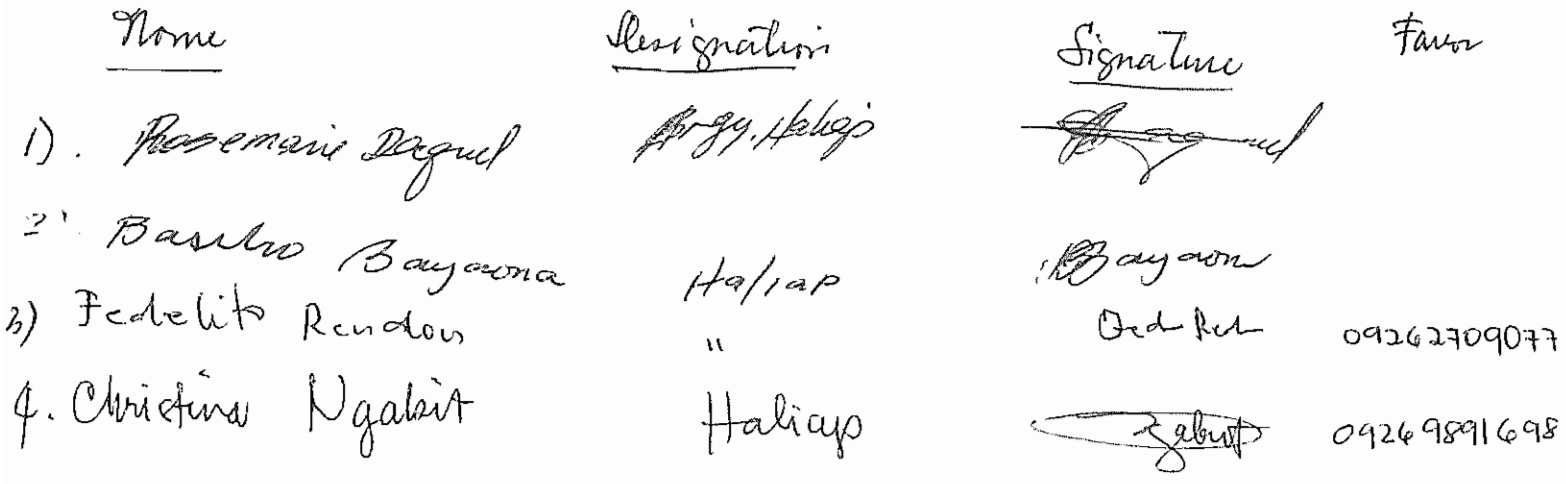 Name Designation Signature Favor
1). Rosemarie Daguel Brgy. Haliap
2. Basilio Bayaona Haliap Bayaon
3) Fedelito Rendon " 09262709077
4. Christina Ngabit Haliap 09269891698